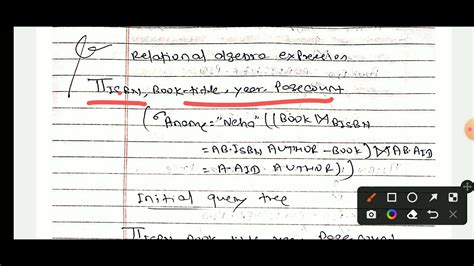 Relational algebra expression
πISBN, Book-title, year, Pagecount
(σAname="Neha" ((BOOK ⋈ B.ISBN
= AB.ISBN AUTHOR-BOOK) ⋈ AB.AID
= A-AID AUTHOR))
Initial query tree
πISBN Book title year Pagecount